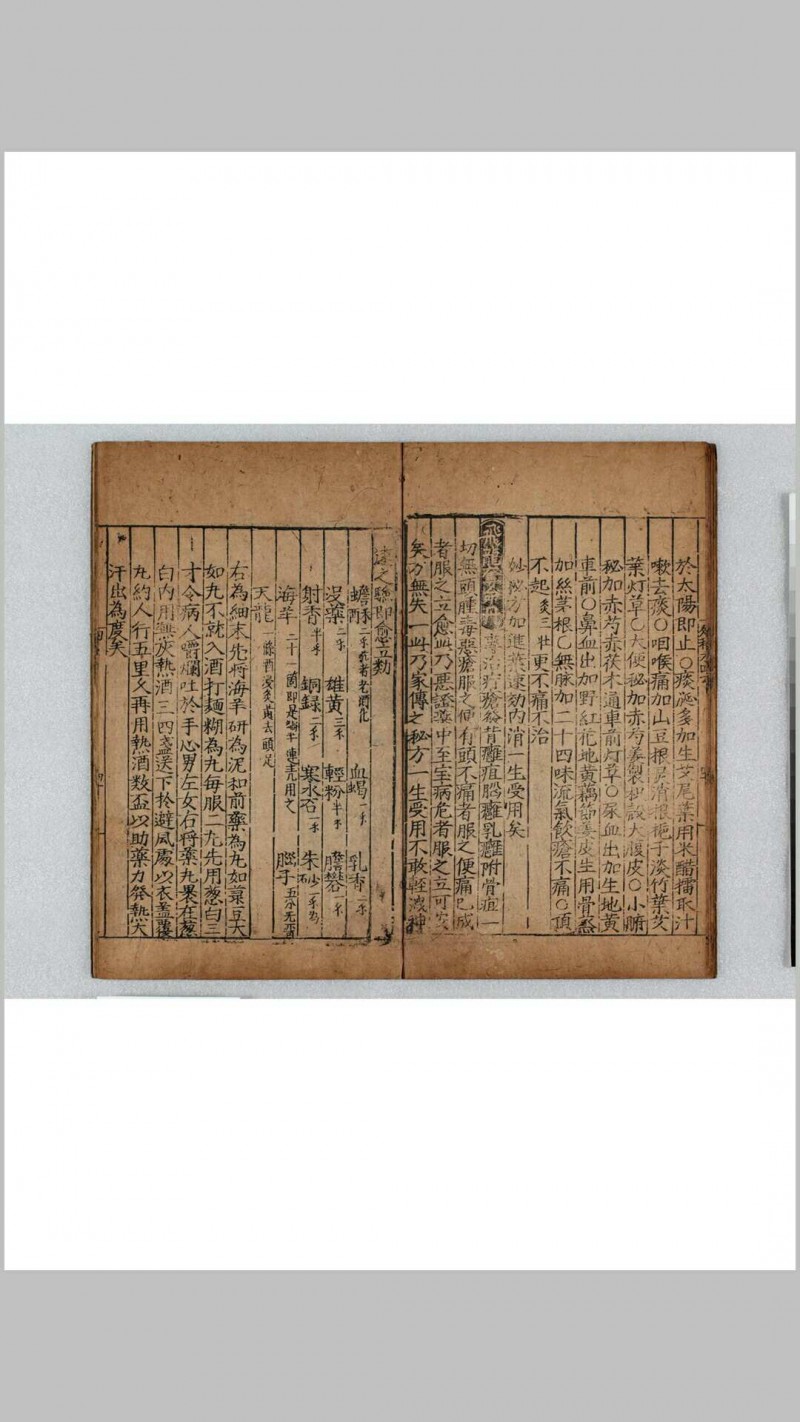 於太陽即止〇痰涎多加生艾尾葉用米醋擂取汁
嗽去痰〇咽喉痛加山豆根梔子淡竹葉艾
葉灯草〇大便秘加赤芍大腹皮〇小腑
秘加赤芍赤茯木通車前灯草〇尿血出加生地黃
車前〇鼻血出加野紅花地黃藕節姜皮生用骨蒸
加絲茅根〇無脉加二十四味流氣飲瘡不痛〇頂
不起灸三壯更不痛不治
妙捘方加進葉速効內消一生受用矣
治疔瘡發背癰疽腸癰乳癰附骨疽一
切無頭腫毒惡瘡服之便有頭不痛者服之便痛已成
者服之立愈此乃惡證藥中至宝病危者服之立可安
矣万無失一此乃家傳之秘方一生受用不敢輕泄神
之驗即愈立効
蟾酥 血竭 一禾 乳香 一禾
沒藥 二禾 雄黃 三禾 輕粉 半禾 膽礬 一禾
射香 半禾 銅録 二禾 寒水石 一禾 朱砂
海羊 二十一箇即是蝸牛連売用之 腦子 五分
天龍 一條酒浸炙黃去頭足
右為細末先將海羊研為泥和前藥為丸如菉豆大
如丸不就入酒打麺糊為丸每服二丸先用葱白三
才令病人嚼爛吐於手心男左女右將藥丸裹在葱
白內用無灰熱酒三四盞送下於避風處以衣盖覆
丸約人行五里久再用熱酒数盃以助藥力發熱大
汗出為度矣